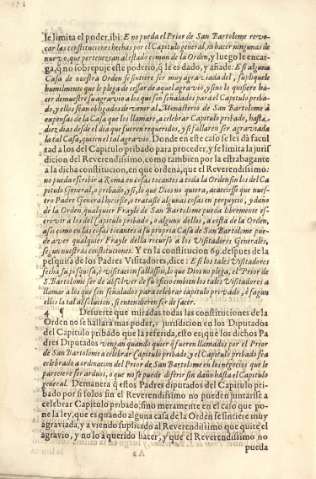 le limita el poder, ibi: E no pueda el Prior de San Bartolome revo-
car las constituciones hechas por el Capitulo general, ni hacer ningunas de
nuevo, que pertenezcan al estado comun de la Orden, y luego le encar-
ga, q̃ no sobrepuje este poderio, q̃ le es dado, y añade. E si alguna
Casa de nuestra Orden se sintiere ser muy agraviada del, supliquele
humilmente que le plega de cessar de aquel agravio, y sino lo quisiere ha-
cer demuestre su agravio a los que son señalados por del Capitulo priba-
do, y ellos son obligados de venir al Monasterio de San Bartolome à
expensas de la Casa que los llamare, à celebrar Capitulo pribado, hasta
diez dias desde el dia que fueren requeridos, y si fallaren ser agraviada
la tal Casa, quiten el tal agravio. Donde en este caso se les dà facul
tad a los del Capitulo pribado para proceder, y se limita la juris
dicion del Reverendissimo, como tambien por la estrabagante
a la dicha constitucion, en que ordena, que el Reverendissimo:
no puedan escribir a Roma en cosas tocantes a toda la Orden sin los del Ca
pitulo General, o pribado, y si, lo que Dios no quiera, acaeciesse que nues-
tro Padre General hiciesse, o tratasse algunas cosas en perjuycio, y daño
de la Orden, qualquier Frayle de San Bartolome pueda libremente es-
crivir a los del Capitulo pribado, o alguno dellos, assi de la Orden,
assi como en las cosas tocantes a su propria Casa de San Bartolome pue-
de aver qualquier Frayle della recurso a los Visitadores Generales,
segun nuestras constituciones. Y en la constitucion 69. despues de la
pesquisa de los Padres Visitadores, dice: E si los tales Visitadores
fecha su pesquisa, è visitacion fallassen, lo que Dios no plega, el Prior de
S. Bartolome ser de absolver de su oficio embien los tales Visitadores a
llamar a los que son señalados para celebrar capitulo privado, e fagan
ellos la tal absolucion, si entendieren ser de facer.
4 ¶ Desuerte que miradas todas las constituciones de la
Orden no se hallarà mas poder, y jurisdicion en los Diputados
del Capitulo pribado que la referida, esto en que los dichos Pa
dres Diputados vengan quando quier q̃ fueren llamados por el Prior
de San Bartolome a celebrar Capitulo pribado, y el Capitulo pribado sea
celebrado a ordenacion del Prior de San Bartolome en los negocios que le
pareciere ser arduos, e que no se puede diferir sin daño hasta el Capitulo
general. Demanera q̃ estos Padres diputados del Capitulo pri-
bado por si solos sin el Reverendissimo no pueden juntarse a
celebrar Capitulo pribado, sino meramente en el caso que po-
ne la ley, que es quando alguna casa de la Orden se sintiere muy
agraviada, y a viendo suplicado al Reverendissimo que quite el
agravio, y no lo a querido hacer, y que el Reverendissimo no
pueda